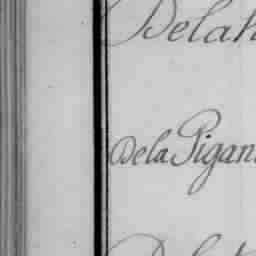 Delah
Dela Pigan